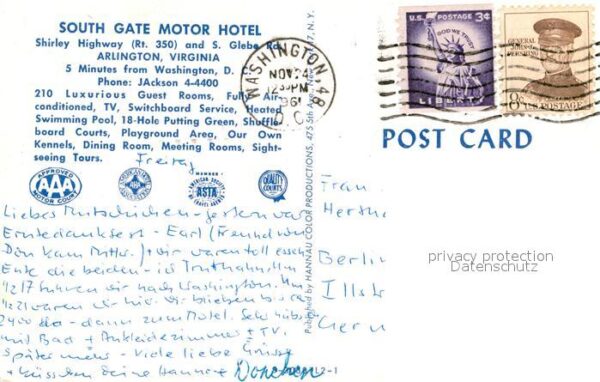 SOUTH GATE MOTOR HOTEL
Shirley Highway (Rt. 350) and S. Glebe Rd.
ARLINGTON, VIRGINIA
5 Minutes from Washington, D.
Phone: JAckson 4-4400
210 Luxurious Guest Rooms, Fully Air-
conditioned, TV, Switchboard Service, Heated
Swimming Pool, 18-Hole Putting Green, Shuffle-
board Courts, Playground Area, Our Own
Kennels, Dining Room, Meeting Rooms, Sight-
seeing Tours.
Freitag
APPROVED
AAA
MOTOR COURT
MEMBER
AMERICAN SOCIETY
ASTA
OF TRAVEL AGENTS
QUALITY
COURTS
Liebes Mutschichen - gestern war
Erntedankfest - Earl (Freund von
Don kam mittw.) + wir waren toll essen
Ente die beiden - ich Truthahn. Um
1/2 17 fuhren wir nach Washington. Um
1/2 21 waren wir hier. Wir blieben bis
2400 da - dann zum Motel. Sehr hübsch
mit Bad + Ankleidezimmer + TV.
später mehr - Viele liebe Grüsse
+ Küsschen Deine Hanna + Donchen
Published by HANNAU COLOR PRODUCTIONS, 475 5th Ave., New York 17, N.Y.
WASHINGTON 4B
NOV 24
12 30 PM
196
D.C.
U.S. POSTAGE 3¢
IN GOD WE TRUST
LIBERTY
GENERAL
JOHN J.
PERSHING
8¢ U.S. POSTAGE
POST CARD
Frau
Hertha
Berlin
privacy protection
Datenschutz
2-1